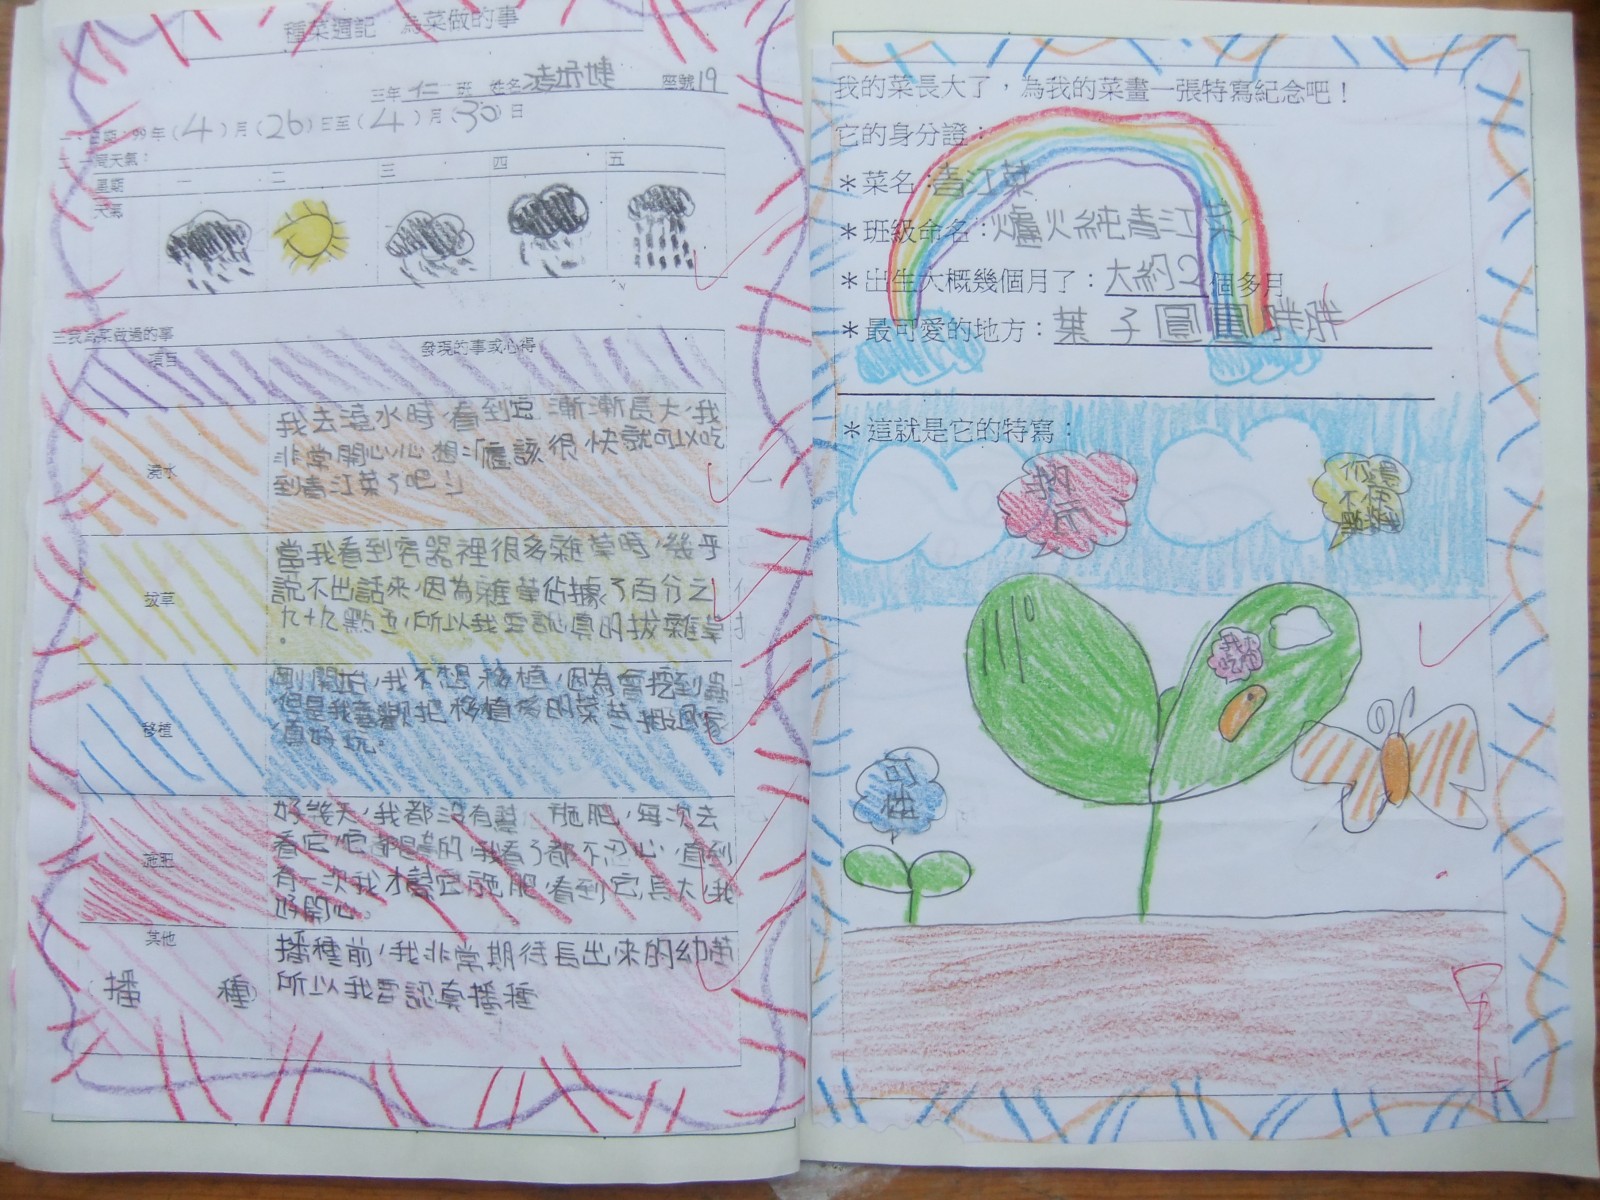 種菜週記 為菜做的事
三年 仁 班 姓名 座號 19
99年(4)月(26)日至(4)月(30)日
二 一周天氣:
星期 一 二 三 四 五
天氣
三我為菜做過的事
項目 發現的事或心得
澆水
我去澆水時,看到 漸漸長大,我
非常開心,心想:「應該很快就可以吃
到青江菜了吧!」
拔草
當我看到容器裡很多雜草時,幾乎
說不出話來,因為雜草佔據了百分之
九十九點 ,所以我要認真的拔雜草
。
移植
剛開始,我不想移植,因為會挖到蟲
但是我喜歡把移植後的菜苗搬回家
真好玩。
施肥
好幾天,我都沒有幫 施肥,每次去
看它,它都 的,我看了都不忍心,直到
有一次我才幫它施肥,看到它長大,我
好開心。
其他
(播 種)
播種前,我非常期待長出來的幼苗
所以我要認真播種
我的菜長大了,為我的菜畫一張特寫紀念吧!
它的身分證:
*菜名:青江菜
*班級命名:爐火純青江菜
*出生大概幾個月了:大約2個多月
*最可愛的地方:葉子圓圓胖胖
*這就是它的特寫:
我吃